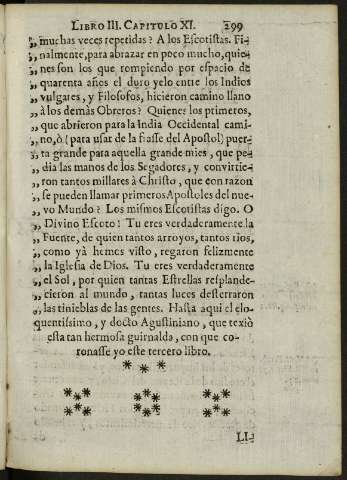 LIBRO III. CAPITULO XI. 299
„ muchas veces repetidas? A los Escotistas. Fi-
„ nalmente, para abrazar en poco mucho, quie-
„ nes son los que rompiendo por espacio de
„ quarenta años el duro yelo entre los Indios
„ vulgares, y Filosofos, hicieron camino llano
„ à los demàs Obreros? Quienes los primeros,
„ que abrieron para la India Occidental cami-
„ no, ò (para usar de la frasse del Apostol) puer-
„ ta grande para aquella grande mies, que pe-
„ dia las manos de los Segadores, y convirtie-
„ ron tantos millares à Christo, que con razon
„ se pueden llamar primeros Apostoles del nue-
„ vo Mundo? Los mismos Escotistas digo. O
„ Divino Escoto! Tu eres verdaderamente la
„ Fuente, de quien tantos arroyos, tantos rios,
„ como yà hemos visto, regaron felizmente
„ la Iglesia de Dios. Tu eres verdaderamente
„ el Sol, por quien tantas Estrellas resplande-
„ cieron al mundo, tantas luces desterraron
„ las tinieblas de las gentes. Hasta aqui el elo-
quentissimo, y docto Agustiniano, que texiò
esta tan hermosa guirnalda, con que co-
ronasse yo este tercero libro.
LI-